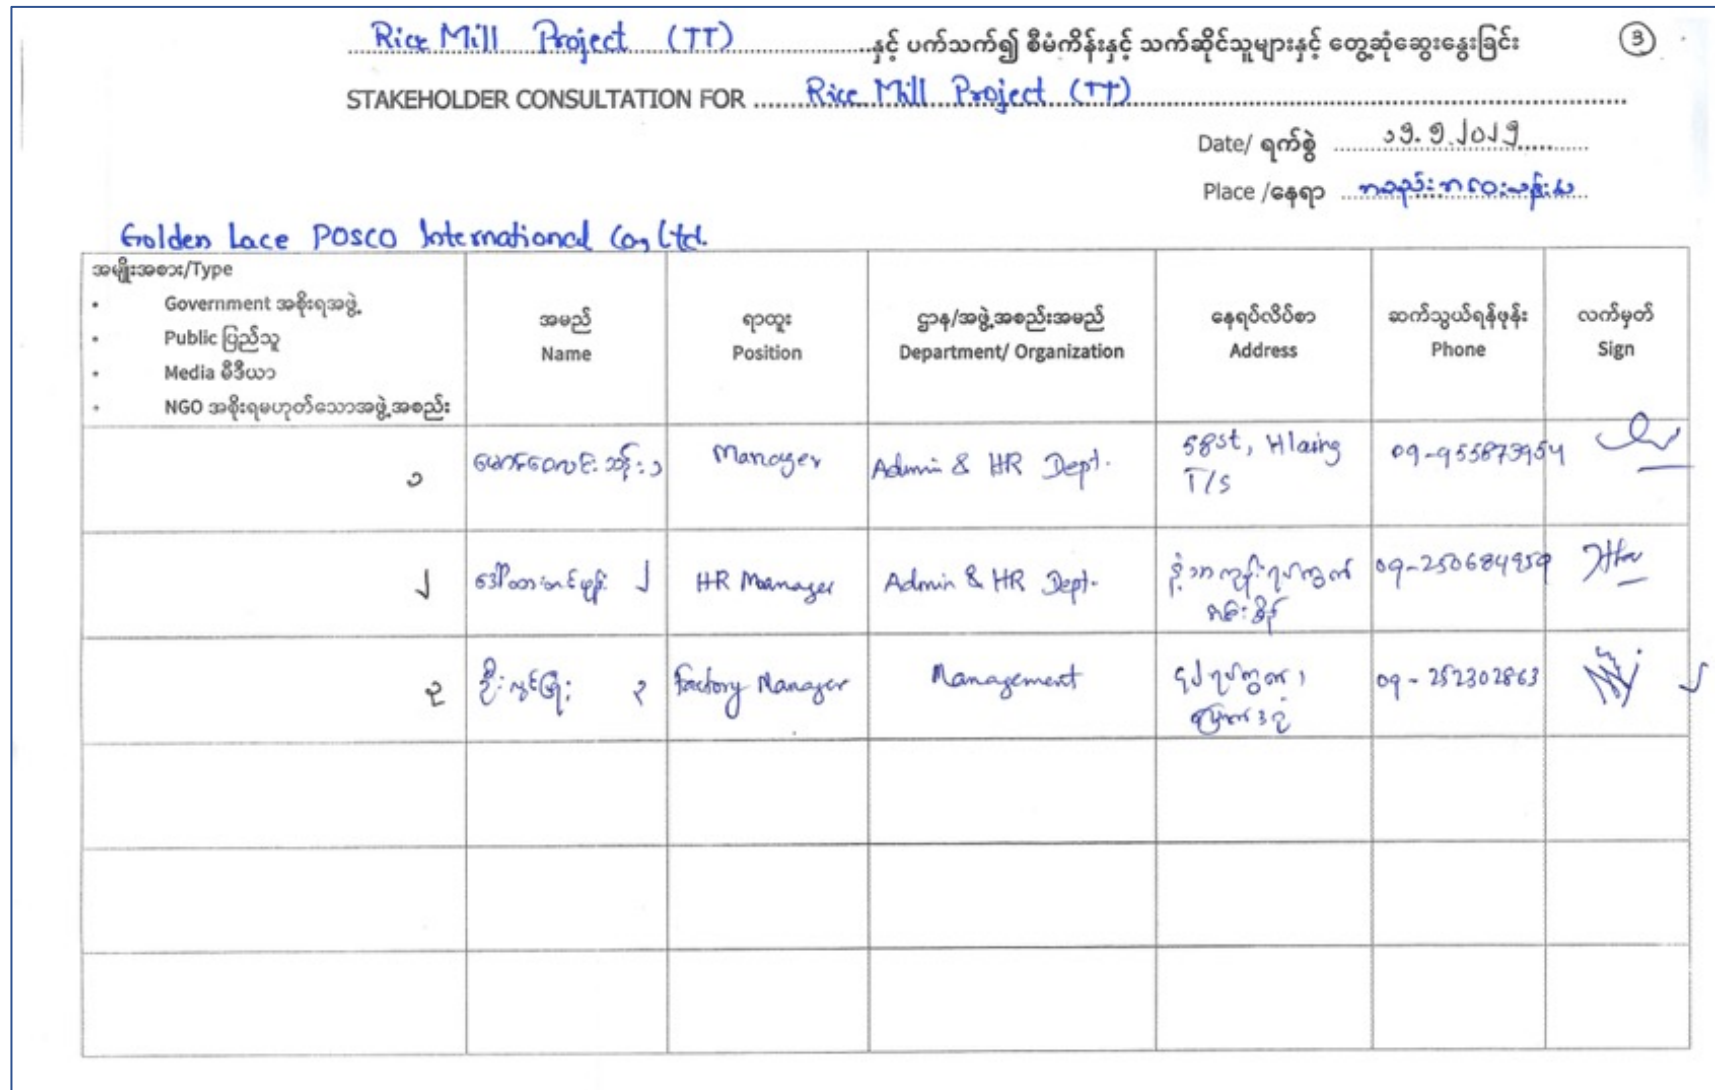 Rice Mill Project (TT) နှင့် ပက်သက်၍ စီမံကိန်းနှင့် သက်ဆိုင်သူများနှင့် တွေ့ဆုံဆွေးနွေးခြင်း
3
STAKEHOLDER CONSULTATION FOR Rice Mill Project (TT)
Date/ ရက်စွဲ ၁၅.၅.၂၀၂၅
Place /နေရာ အစည်းအဝေးခန်းမ
Golden Lace POSCO International Co., Ltd.
အမျိုးအစား/Type
• Government အစိုးရအဖွဲ့
• Public ပြည်သူ
• Media မီဒီယာ
• NGO အစိုးရမဟုတ်သောအဖွဲ့အစည်း
အမည်
Name
ရာထူး
Position
ဌာန/အဖွဲ့အစည်းအမည်
Department/ Organization
နေရပ်လိပ်စာ
Address
ဆက်သွယ်ရန်ဖုန်း
Phone
လက်မှတ်
Sign
၁ ၁ Manager Admin & HR Dept. 58st, Hlaing 09-955873954
T/S
၂ ၂ HR Manager Admin & HR Dept. 09-250684959
၃ ဦး ၃ Factory Manager Management ရပ်ကွက်၊ 09-252302863